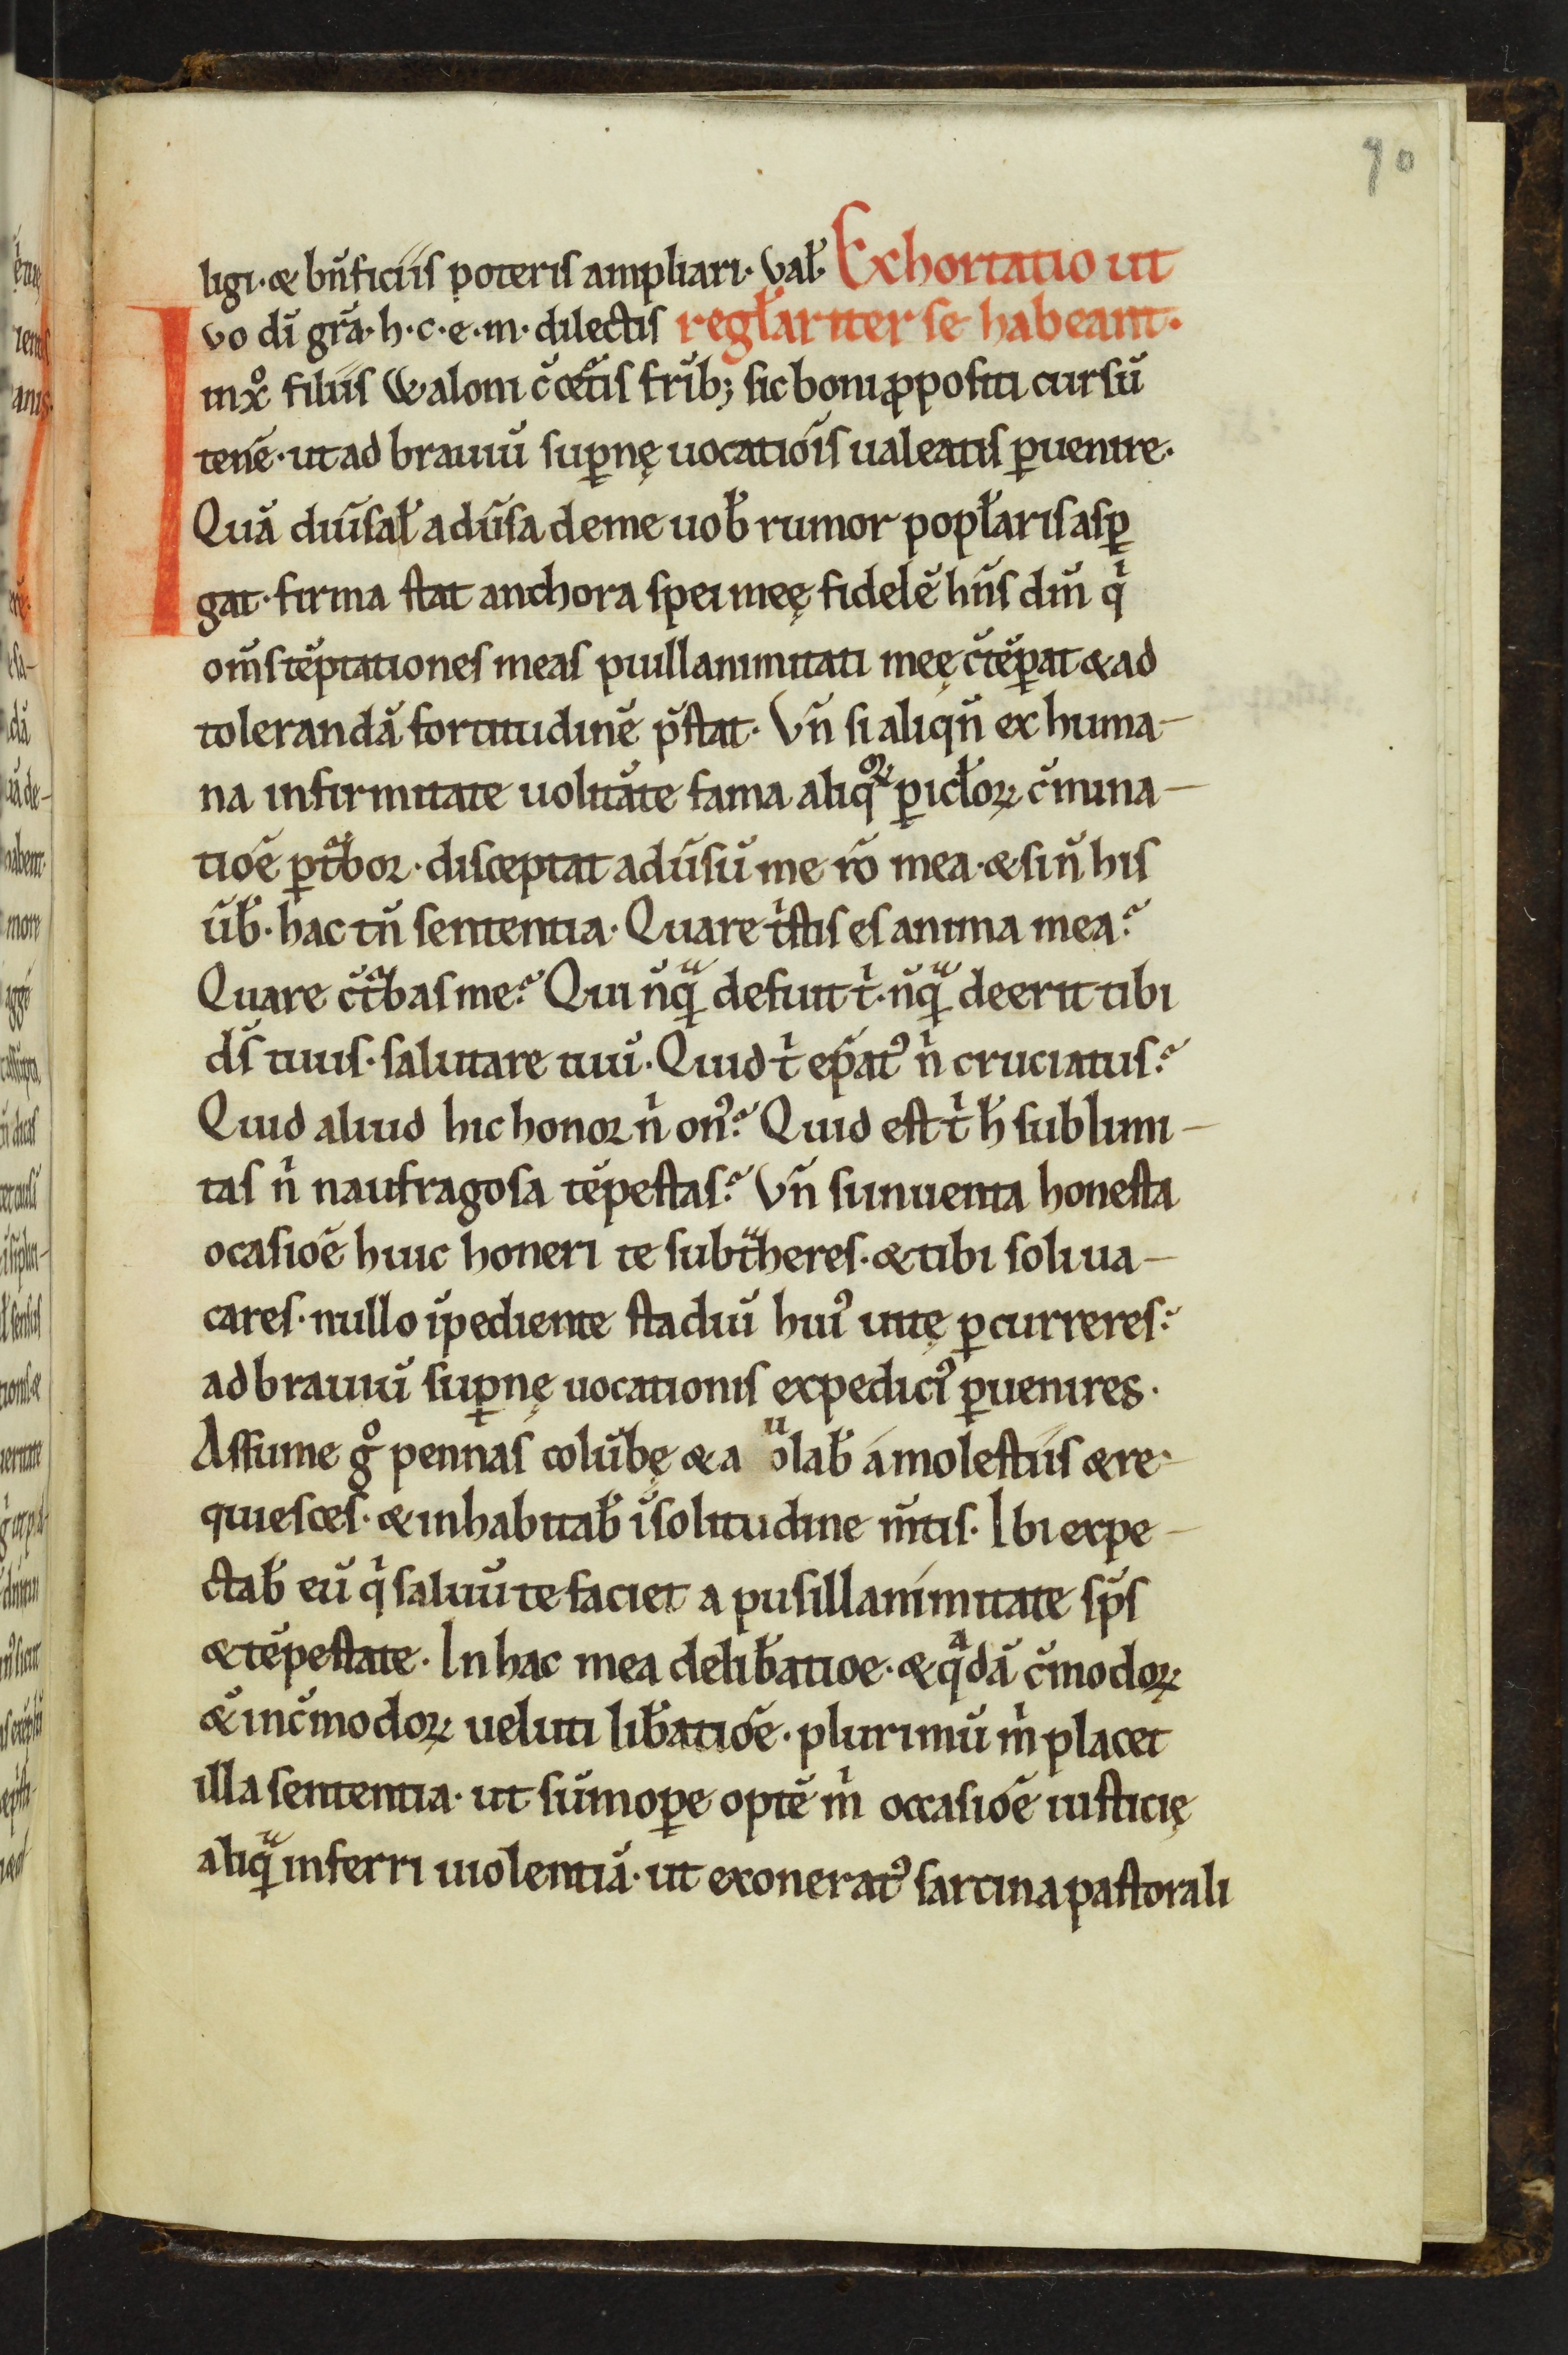 90
ligi · & bn̄ficiis poteris ampliari · Val̄ · Exhortatio ut
Ivo dī gr̄a · h · c · e · m · dilectis regl̄ariter se habeant ·
in xp̄o filiis Waloni c̄ cet̄is fr̄ib; sic boni ꝓpositi cursū
tenē · ut ad brauiū suꝑnę uocatiōis ualeatis ꝑuenire ·
Quā diūsa ł adūsa de me uob̄ rumor popl̄aris asꝑ
gat · firma stat anchora spei meę fidelē hn̄s dm̄ qͥ
om̄s tēptationes meas piullanimitati meę c̄tēꝑat & ad
tolerandā fortitudinē p̄stat · Vn̄ si aliqn̄ ex huma-
na infirmitate uolitāte fama aliqͦꝝ ꝑicl̄oꝝ c̄mina-
tiōe ꝑtᵃbor · disceptat adūsū me rō mea · & si n̄ his
ūb̄ · hac tn̄ sententia · Quare tͥstis es anima mea?
Quare c̄tᵃbas me? Qui nūqͣ defuit tͥ · nūqͣ deerit tibi
ds̄ tuus · salutare tuū · Quid tͥ ep̄atꝰ nͥ cruciatus?
Quid aliud hic honor nͥ onꝰ? Quid est tͥ h̄ sublimi-
tas nͥ naufragosa tēpestas? Vn̄ si inuenta honesta
ocasiōe huic honeri te subtᵃheres · & tibi soli ua-
cares · nullo īpediente stadiū huiꝰ uitę ꝑcurreres?
ad brauiū suꝑnę uocationis expeditiꝰ ꝑuenires ·
Assume gͦ pennas colūbę & auolab̄ á molestiis & re-
quiesces · & inhabitab̄ ī solitudine m̄tis · Ibi expe-
ctab̄ eū qͥ saluū te faciet a pusillanimitate sp̄s
& tēpestate · In hac mea delib̄atioe · & qᵃdā c̄modoꝝ
& inc̄modoꝝ ueluti lib̄atiōe · plurimū mͥ placet
illa sententia · ut sūmoꝑe optē mͥ occasiōe iusticię
aliqͣ inferri uiolentiā · ut exoneratꝰ sarcina pastorali